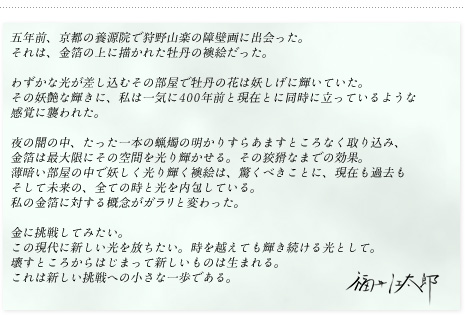 五年前、京都の養源院で狩野山楽の障壁画に出会った。
それは、金箔の上に描かれた牡丹の襖絵だった。
わずかな光が差し込むその部屋で牡丹の花は妖しげに輝いていた。
その妖艶な輝きに、私は一気に400年前と現在とに同時に立っているような
感覚に襲われた。
夜の闇の中、たった一本の蝋燭の明かりすらあますところなく取り込み、
金箔は最大限にその空間を光り輝かせる。その狡猾なまでの効果。
薄暗い部屋の中で妖しく光り輝く襖絵は、驚くべきことに、現在も過去も
そして未来の、全ての時と光を内包している。
私の金箔に対する概念がガラリと変わった。
金に挑戦してみたい。
この現代に新しい光を放ちたい。時を越えても輝き続ける光として。
壊すところからはじまって新しいものは生まれる。
これは新しい挑戦への小さな一歩である。
太郎